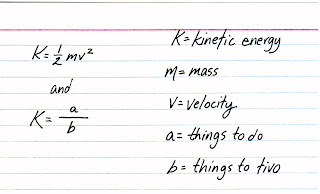 K = ½ mv²
and
K = a/b
K = kinetic energy
m = mass
v = velocity
a = things to do
b = things to tivo